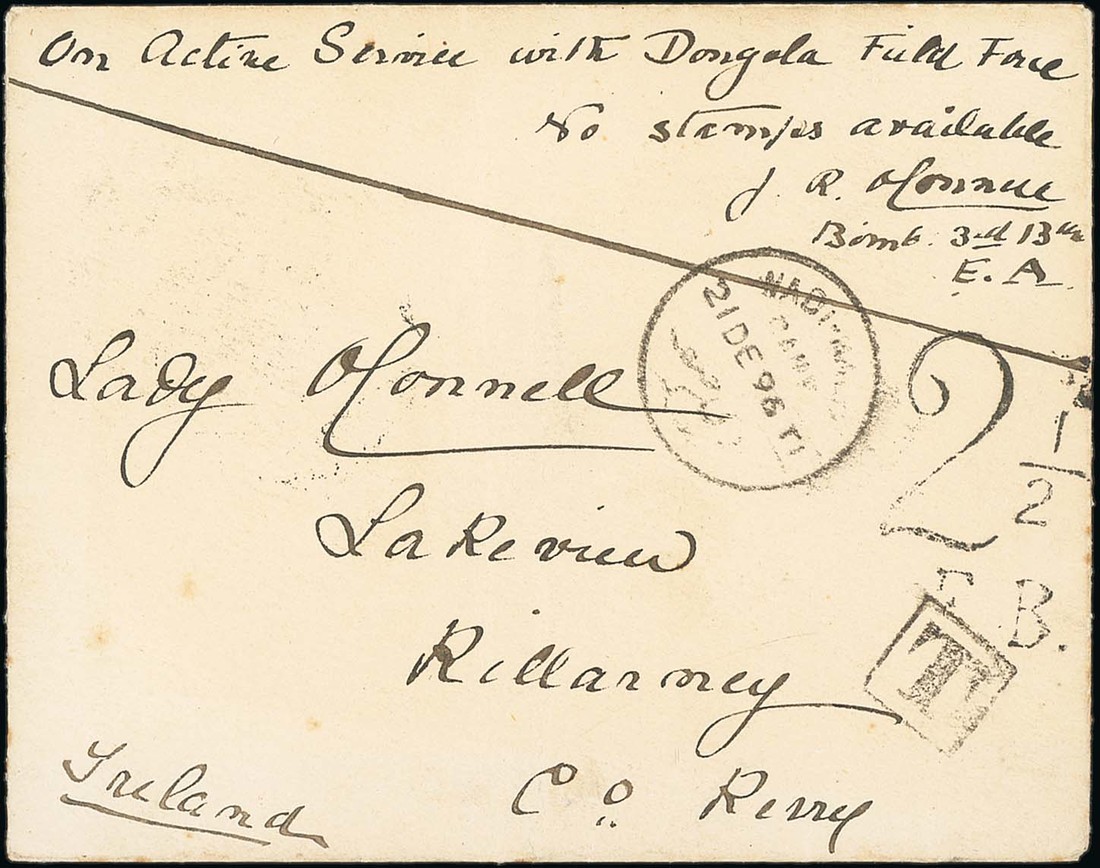 On Active Service with Dongola Field Force
No stamps available
J. R. O'Connell
Bomb. 3rd
E. A.
CAMP
21 DE 96 T1
Lady O'Connell
Lakeview
Killarney
Co. Kerry
Ireland
2 1/2
F. B.
T